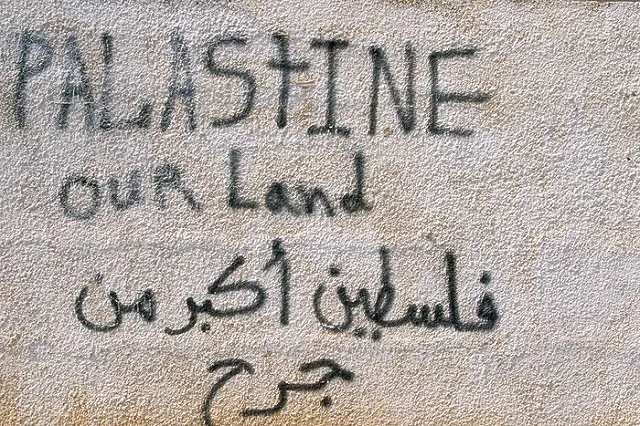 PALAStINE
OUR Land
فلسطين أكبر من
جرح